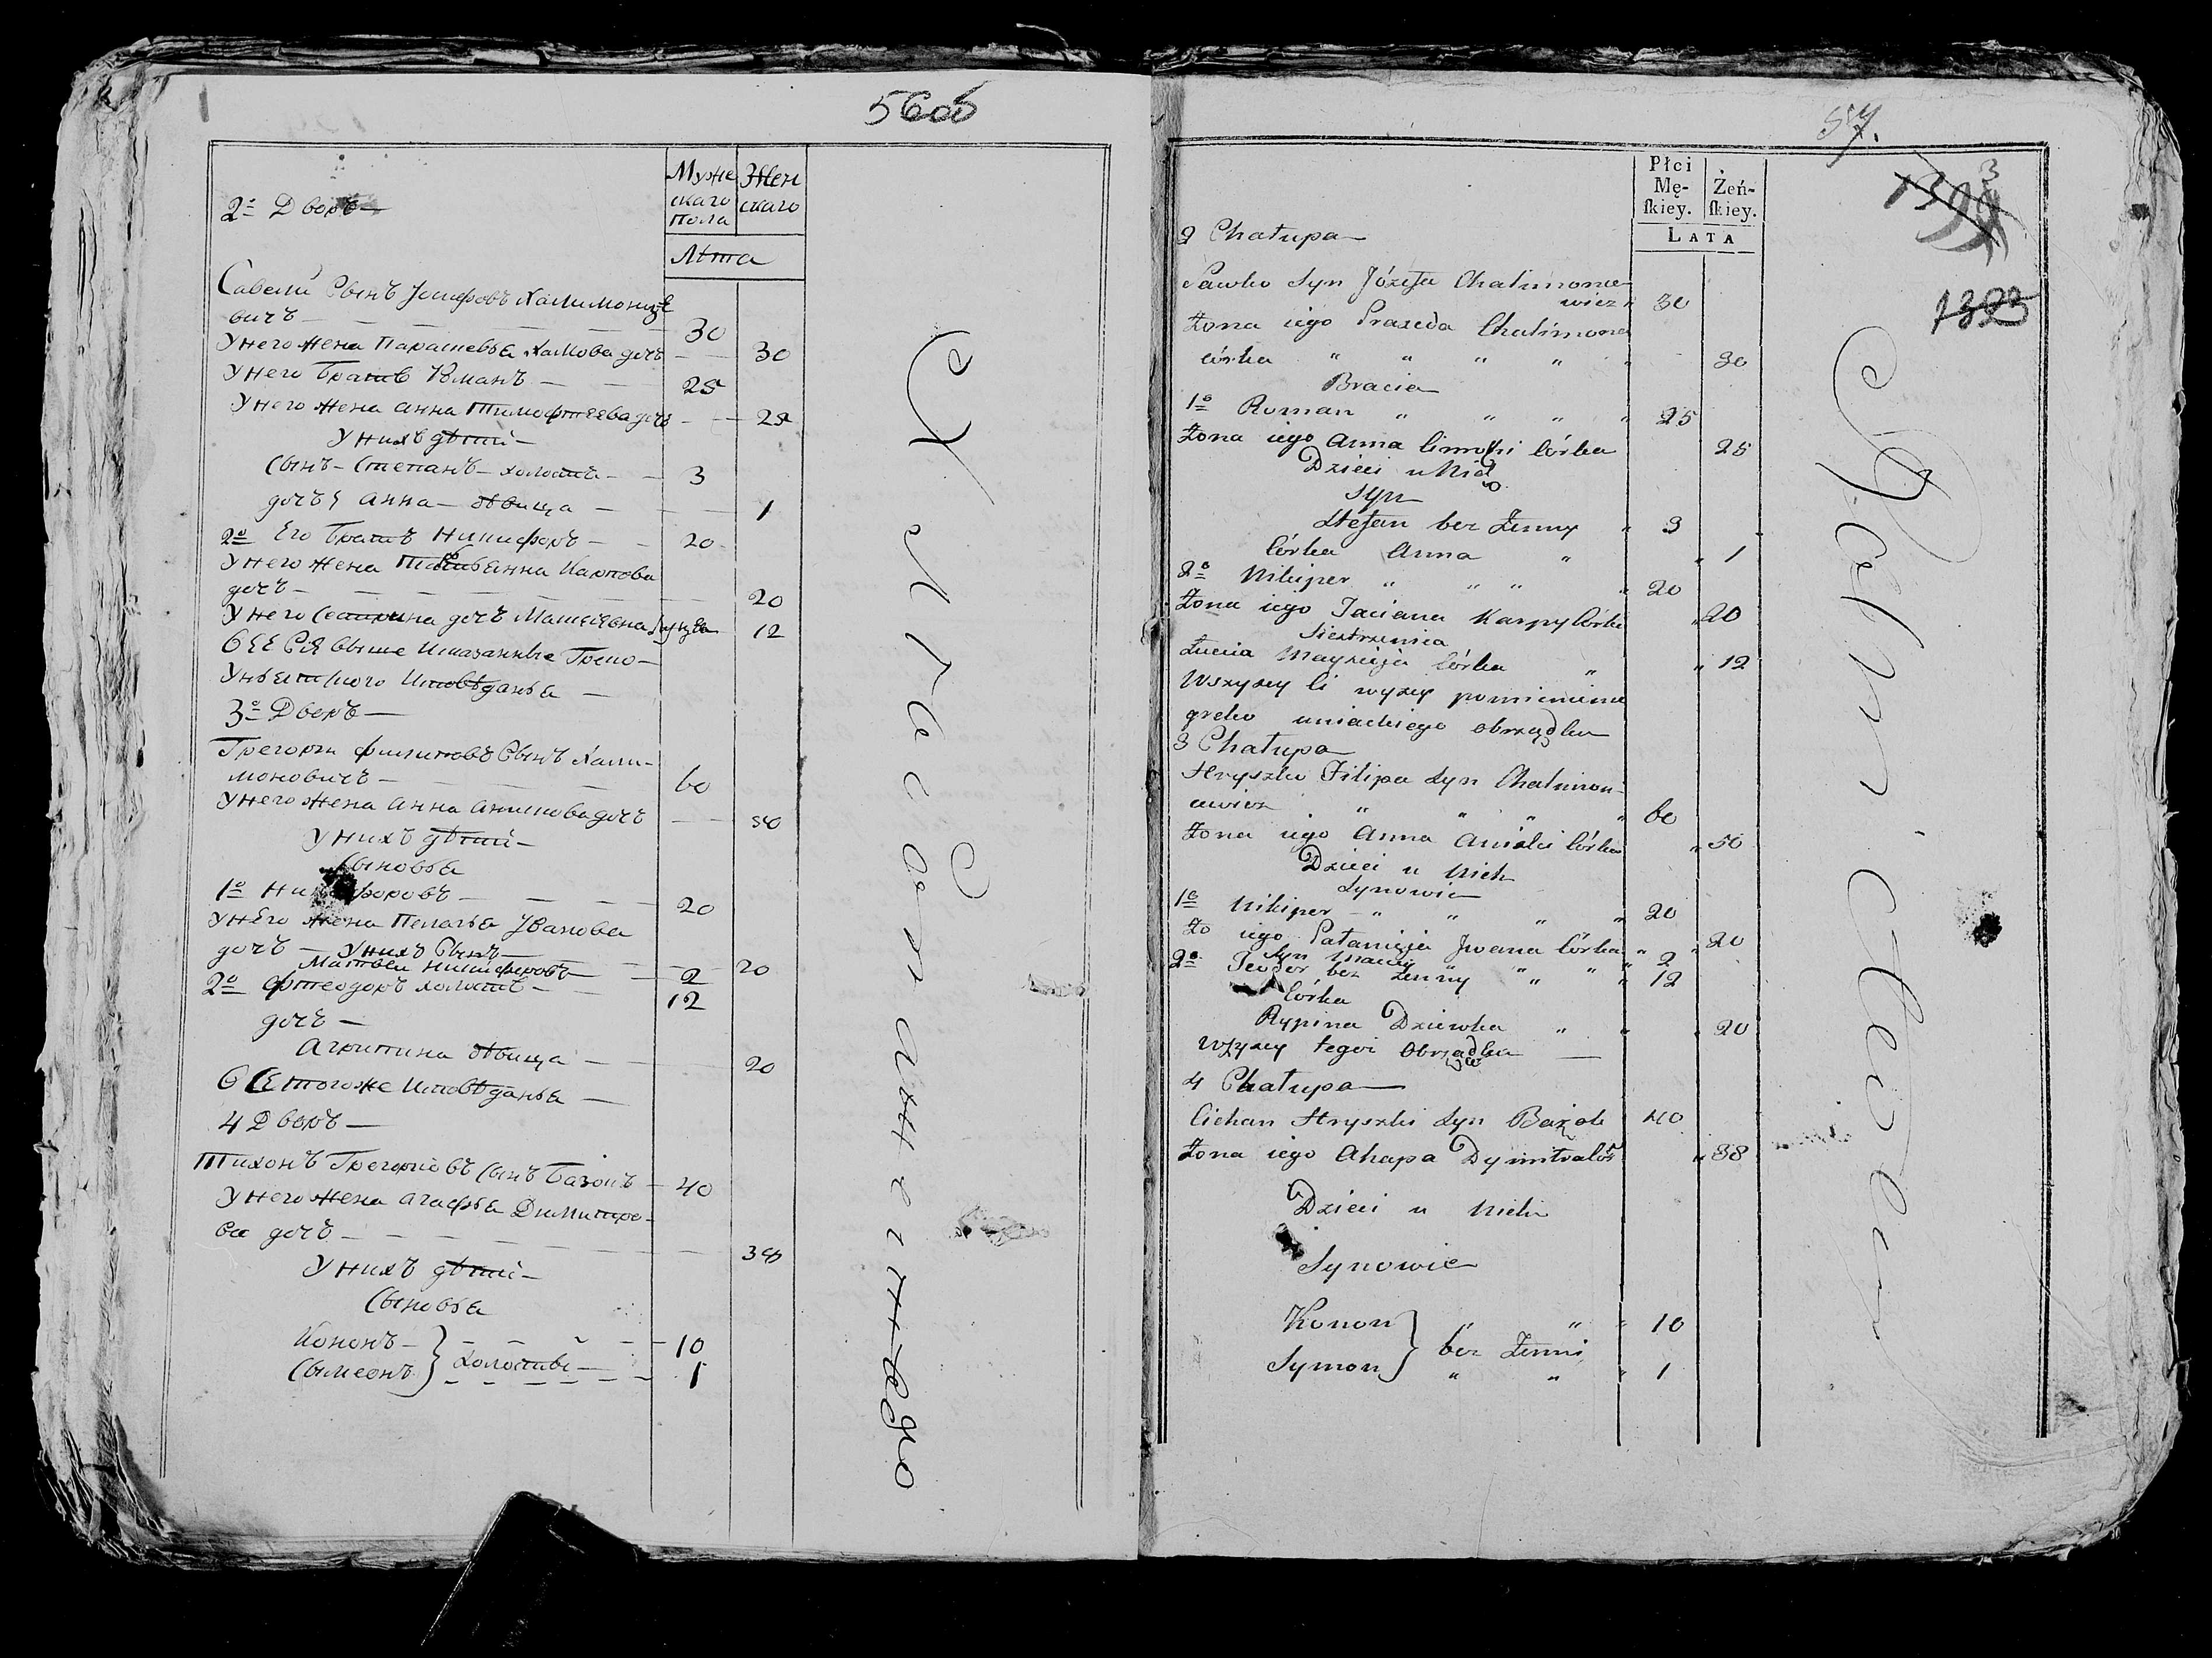 56об
2о Дворъ —
Муже
скаго
пола
Жен
скаго
Лѣта
Савели Сынъ Јосифовъ Халимонов
вичъ — 30
Унего жена Парасневьа Халмова дочь — 30
Унего братъ Романъ — 25
Унего жена Анна Тимофтеева дочъ — 25
Унихъ дѣти —
Сынъ — Степанъ — холостъ — 3
дочъ Анна — дѣвица — 1
2о Его братъ Никифоръ — 20
Унего жена Татьанна Карпова
дочъ — 20
Унего Сестрина дочъ Матеевна Луцеа 12
Все Ся выше Указанные Греко —
Унѣатского Исповѣданьа —
3о Дворъ —
Грегори Филиповъ Сынъ Хали-
моновичъ — 60
Унего жена Анна Анисова дочъ — 50
Унихъ дѣти —
Сыновьа
1о Никифоровъ — 20
Унего жена Пелагьа Јванова
дочъ — 20
Унихъ Сынъ
Матвеи Никифоровъ — 2
2о Фтеодоръ холостъ — 12
дочъ —
Агрипина дѣвица — 20
Все тогоже Исповѣданьа —
4 Дворъ —
Тихонъ Грегориовъ Сынъ Базонъ — 40
Унего жена Агафьа Димитро-
ва дочъ — 38
Унихъ дѣти —
Сыновьа
Кононъ — } холостые — 10
Сымеонъ } — 1
57.
Płci
Mę-
ſkiey.
Żeń-
ſkiey.
LATA
1323
2 Chałupa —
Sawko Syn Józefa Chalimono-
wicz 30
Żona iego Praxeda Chalimona
Córka " " " " " 30
Bracia
1o Roman " " " " 25
Żona iego Anna Cimofii Córka 25
Dzieci u Nich
Syn
Stefan bez Żenny " 3
Córka Anna " " 1
2o Nikiper " " " " 20
Żona iego Taciana Karpy Córka " 20
Siestrzenica
Łucia Maysieja Córka " " 12
Wszyscy Ci wyzey pomienieni
greko uniackiego obrządku
3 Chałupa
Hryszko Filipa Syn Chalimon-
owicz " " " " 60
Żona iego Anna Aniski Córka " 50
Dzieci u Nich
Synowie
1o Nikiper — " " " " 20
Żo iego Pałanieja Jwana Córka " 20
Syn Maciey " " 2
2o Teodor bez Żenny " " " 12
Córka
Rypina Dziewka " " " 20
Wszyscy tegoż Obrządku —
4 Chałupa —
Cichan Hryszki Syn Bazok 40
Żona iego Ahapa Dymitra Cór " 38
Dzieci u Nich
Synowie
Konon } " " " 10
bez Żenni
Symon } " " " 1